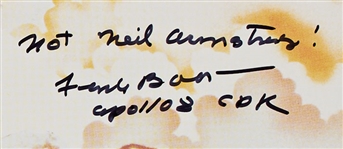 Not Neil Armstrong!
Frank Borman
Apollo 8 CDR